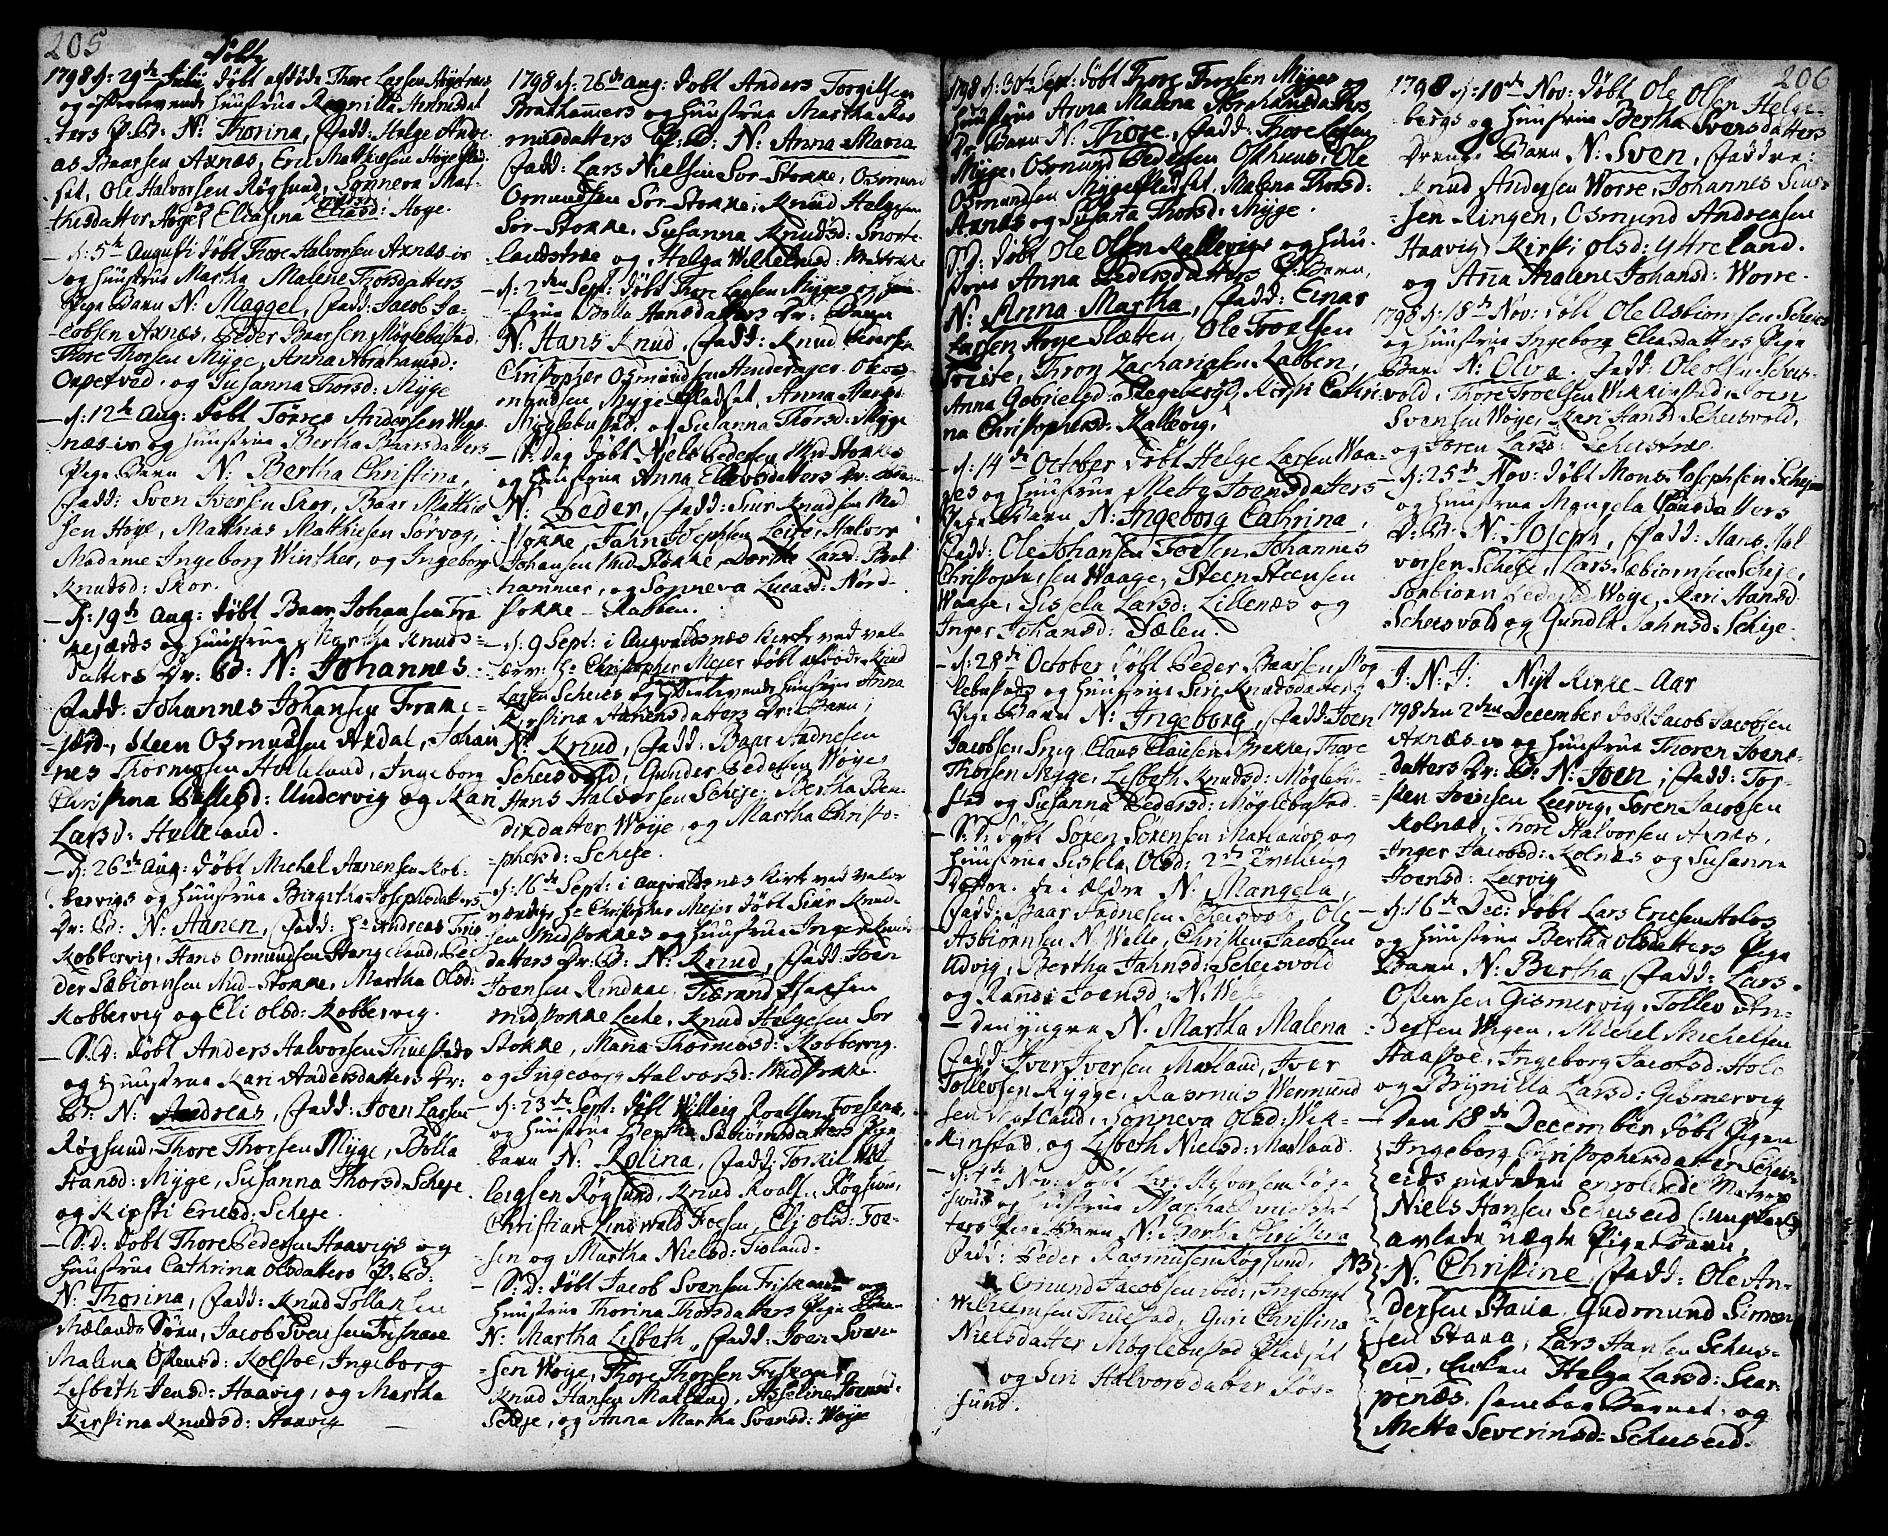 205
Døbte
1798 d: 29de Julii døbt afdøde Thore Larsen
og efterlevende Huustrue Ragnilla
ters P. Bd: N: Thorina, Fadd: Helge Andre
as Baarsen Axnæs, Eric Mathiesen Høye Plad-
set, Ole Halvorsen Røgsund, Sønneva Mat-
thisdatter Høye og Eliasina Knudsd: Høye.
– d: 5te Augusti døbt Thore Halvorsen Axnæs
og Huustrue Martha Malene Thorsdatters
Pige Barn N: Maggel, Fadd: Jacob Ja-
cobsen Axnæs, Peder Baarsen Møglebustad,
Thore Thorsen Myge, Anna Abrahamsd:
og Susanna Thorsd: Myge
– d: 12te Aug: døbt Tørres Andersen
næs og Huustrue Bertha Baarsdatters
Pige Barn N: Bertha Christina,
Fadd: Sven Iversen Skor, Baar Mathie
sen Høye, Matthias Mathiesen Sørvog,
Madame Ingeborg Winther, og Ingeborg
Knudsd: Skor.
– d: 19de Aug: døbt Baar Johansen Fra
kjærds og Huustrue Martha Knuds-
datters Dr: Bd: N: Johannes.
Fadd: Johannes Johansen Frake-
jærd, Steen Osmundsen Axdal, Johan
nes Thormosen Helleland, Ingeborg
Christina Undervig og Kari
Larsd: Helleland.
– d: 26de Aug: døbt Michel Aanensen Kob-
bervigs og Huustrue Birgitha Josephsdatters
Dr: Bd: N: Aanen, Fadd: Hr Andreas
Kobbervig, Hans Ormundsen Hangeland, Pe
der Sæbiørnsen Mid-Stokke, Martha Olsd:
Kobbervig og Eli Olsd: Kobbervig.
– S: D: døbt Anders Halvorsen Thuestads
og Huustrue Kari Andersdatters Dr:
Bd: N: Andreas, Fadd: Joen Larsen
Røgsund, Thore Thorsen Myge, Bolla
Hansd: Myge, Susanna Thorsd: Scheje
og Kirsti Ericsd: Scheje.
– S: D: døbt Thore Pedersen Haavigs og
Huustrue Cathrina Olsdatters P. Bd:
N: Thorina, Fadd: Knud Tollaksen
Mælands Søen, Jacob Svensen Friskaae
Malena Ostensd: Kolstøe, Ingeborg
Lisbeth Jensd: Haavig, og Martha
Kirstina Knudsd: Haavig
1798 d: 26de Aug: døbt Anders Torgilsen
Brathammers og Huustrue Martha Ras
musdatters P: Bd: N: Anna Maria
Fadd: Lars Nielsen Sør-Stokke, Osmund
Omundsen Sør-Stokke, Knud Helgesen
Sør-Stokke, Susanna Knudsd: Snorte-
landstræe og Helga Wilhelmsd:
– d: 2den Sept: døbt Thore Larsen Myges og Huu-
strue Bolla Hansdatters Dr: Barn
N: Hans Knud, Fadd: Knud
Christopher Osmundsen
mundsen Myge Pladset, Anna Hansd:
Møglebustad, og Susanna Thorsd: Myge
– S: Dag døbt Niels Pedersen Mid Stokkes
og Huustrue Anna Ellevsdatters Dr: Barn
N: Peder, Fadd: Siur Knudsen Mid
stokke, Jahn Josephsen Leite, Halvor
Johansen Mid Stokke, Dorthe Larsd: Brat
hammer, og Sønneva Lucasd: Nord-
stokke – Kabben.
– d: 9 Sept: i Augvaldsnæs Kirke ved velæ
ærv: Hr Christopher Meier døbt afdøde Knud
Larsen Scheies og efterlevende Huustrue Anna
Kirstina Aanensdatters Dr: Barn,
N: Knud, Fadd: Baar Andnesen
Scheisvold, Gunder Pedersen Woye
Hans Halvorsen Scheje, Bertha Ben-
dixdatter Woye, og Martha Christo-
phersd: Scheje.
– d: 16de Sept: i Augvaldsnæs Kirke ved velær
værdige Hr Christopher Meier døbt Siur Knud-
sen Midstokkes og Huustrue Inger Knuds
datters Dr: B: N: Knud, Fadd: Joen
Joensen Rindøe, Isacsen
Midstokke Leite, Knud Helgesen Sør
Stokke, Maria Thormodsd: Kobbervig
og Ingeborg Halvorsd: Midstokke.
– d: 23de Sept: døbt Willeig Roalsen Foesens
og Huustrue Bertha Sæbiørnsdatters Pige
barn N: Rolina, Fadd: Torkil Wil
leigsen Røgsund, Knud Roalsen, Røgsund,
Christian Lindwald Foesen, Eli Olsd: Foe-
sen og Martha Nielsd: Fisland.
– S: D: døbt Jacob Svensen Friskaae og
Huustrue Thorina Thorsdatters Pige Barn
N: Martha Lisbeth, Fadd: Joen Sven-
sen Woye, Thore Thorsen Friskaae
Knud Hansen Matland, Asseline Joensd:
Scheje, og Anna Martha Svensd: Woye
1798 d: 30te Sept: døbt Thore Troelsen Myges og
Huustrue Anna Malena Abrahamsdatters
Dr: Barn N: Thore, Fadd: Thore Larsen
Myge, Osmund Pedersen Osthuus, Ole
Osmundsen Myge Pladset, Malena Thorsd:
Axnæs og Susanna Thorsd: Myge.
S: D: døbt Ole Olsen Kallevigs og Huu-
strue Anna Pedersdatters P: Barn,
N: Anna Martha, Fadd: Einar
Larsen Høye Sletten, Ole Troelsen
Leite, Tron Zachariasen Kabben,
Anna Gabrielsd: Hegeberg, Kirsti Cathri
na Christophersd: Kallevig.
– d: 14de October døbt Helge Larsen Waa-
ges og Huustrue Mette Joensdatters
Pige Barn N: Ingeborg Cathrina,
Fadd: Ole Johansen Foesen, Johannes
Christophersen Waage, Steen Steensen
Waage, Sissela Larsd: Lillenæs og
Inger Johansd: Sælen.
– d: 28de October døbt Peder Baarsen Møg
lebustads og Huustrue Siri Knudsdatters
Pige Barn N: Ingeborg, Fadd: Joen
Jacobsen Snig, Claus Clausen Brekke, Thore
Thorsen Myge, Lisbeth Knudsd: Møglebu-
stad og Susanna Pedersd: Møglebustad.
– S: D: døbt Søren Sørensen Matlands og
Huustrue Siskla Olsd: 2de Tvilling
Døttre. den ældre N: Mangela,
Fadd: Baar Andnesen Scheisvold, Ole
Asbiørnsen N: Welle, Christen Jacobsen
Udvig, Bertha Jahnsd: Scheisvold
og Ranvei Joensd: N: Welle
– den yngre N: Martha Malena
Fadd: Iver Iversen Matland, Iver
Tollevsen Rygge, Rasmus Wermund
sen Matland, Sønneva Olsd: Wik-
kinstad, og Lisbeth Nielsd: Matland.
– d: 4de Nov: døbt Lars Halvorsen Røge
sunds og Huustrue Martha Omundsdat-
ters Pige Barn N: Bertha Christina
Fadd: Peder Rasmussen Røgsund,
Osmund Jacobsen ibid:, Ingebrigt
Wilhelmsen Thuestad, Guri Christina
Nielsdatter Møglebustad Pladset
og Siri Halvorsdatter Røg-
sund.
NB
206
1798 d: 10de Nov: døbt Ole Olsen Helge
bergs og Huustrue Bertha Svensdatters
Drenge Barn N: Sven, Faddre:
Knud Andersen Worre, Johannes Siur-
sen Ringen, Osmund Andersen
Haavig, Kirsti Olsd: Ytreland.
og Anna Malene Johansd: Worre.
1798 d: 18de Nov: døbt Ole Asbiørnsen Scheies
og Huustrue Ingeborg Eliasdatters Pige
Barn N: Oliva. Fadd: Ole Olsen Scheis-
vold, Thore Troelsen Wikkinstad, Joen
Svensen Woye, Kari Hansd: Scheisvold,
og Søren Larsd: Scheistræ.
– d: 25de Nov: døbt Mons Josephsen Scheje
og Huustrue Mangela Clausdatters
Dr: Br: N: Joseph, Fadd: Hans Hal
vorsen Scheje, Lars Sæbiørnsen Scheje,
Torbiørn Pedersen Woye, Kari Hansd:
Scheisvold og Gundla Jahnsd: Scheje.
J: N: J: Nyt Kirke-Aar
1798 den 2den December døbt Jacob Jacobsen
Axnæs og Huustrue Thoren Joens-
datters Dr: B: N: Joen, Fadd: Tor-
sten Joensen Leervig, Søren Jacobsen
Kolnæs, Thore Halvorsen Axnæs,
Inger Jacobsd: Kolnæs og Susanna
Joensd: Leervig
– d: 16de Dec: døbt Lars Ericsen Holes
og Huustrue Bertha Olsdatters Pige
Barn N: Bertha, Fadd: Lars
Ostensen Gismervig, Tollev An-
dersen Wigen, Michel Michelsen
Haastøe, Ingeborg Jacobsd: Hole
og Brynilla Larsd: Gismervig
– Den 18de December døbt Pigen
Ingeborg Christophersdatter Scheis-
eids med den enrolerede Matros
Niels Hansen Scheiseid (Ungkarl)
avlede uægte Pige Barn,
N: Christine, Fadd: Ole An-
dersen Stava, Gudmund Simon
sen Stava, Lars Hansen Scheis-
eid, Enken Helga Larsd: Skar-
penæs, som bar Barnet, og
Mette Severinsd: Scheiseid.